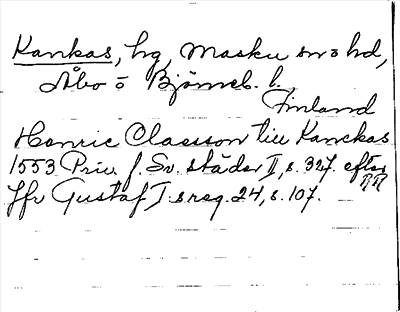 Kankas, hg, Masku sn o hd,
Åbo o Björneb. l.
Finland
Henric Classon till Kanckas
1553 Priv f. Sv. städer II, s. 327. efter
RR
Jfr Gustaf I:s reg. 24, s. 107.